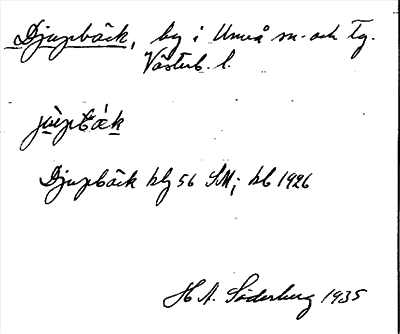 Djupbäck, by i Umeå sn. och Tg.
Västerb. l.
jùpbák
Djupbäck blg 56 SM; bl 1926
H A. Söderberg 1935